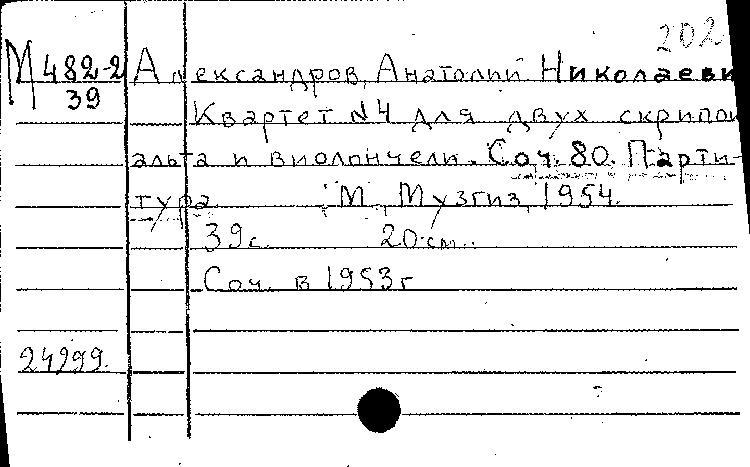 202
М 482-2 Александров, Анатолий Николаеви
39
Квартет №4 для двух скрипок
альта и виолончели. Соч. 80. Парти-
тура М., Музгиз, 1954.
39 с. 20 см.
Соч. в 1953 г
24299.